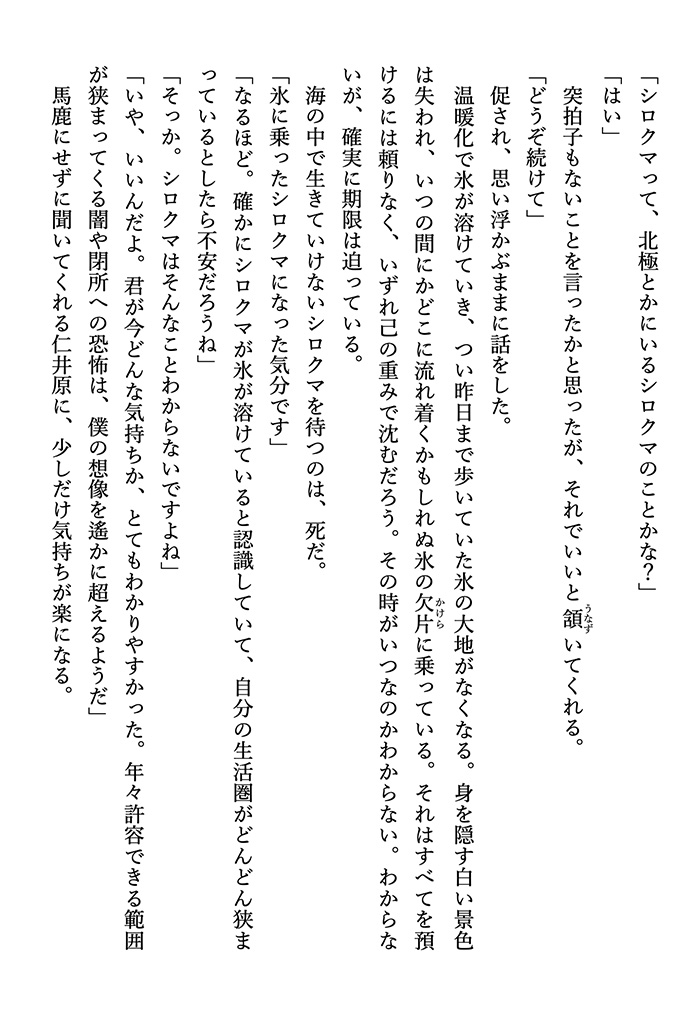 「シロクマって、北極とかにいるシロクマのことかな？」
「はい」
突拍子もないことを言ったかと思ったが、それでいいと頷いてくれる。
うなず
「どうぞ続けて」
促され、思い浮かぶままに話をした。
温暖化で氷が溶けていき、つい昨日まで歩いていた氷の大地がなくなる。身を隠す白い景色
は失われ、いつの間にかどこに流れ着くかもしれぬ氷の欠片に乗っている。それはすべてを預
かけら
けるには頼りなく、いずれ己の重みで沈むだろう。その時がいつなのかわからない。わからな
いが、確実に期限は迫っている。
海の中で生きていけないシロクマを待つのは、死だ。
「氷に乗ったシロクマになった気分です」
「なるほど。確かにシロクマが氷が溶けていると認識していて、自分の生活圏がどんどん狭ま
っているとしたら不安だろうね」
「そっか。シロクマはそんなことわからないですよね」
「いや、いいんだよ。君が今どんな気持ちか、とてもわかりやすかった。年々許容できる範囲
が狭まってくる闇や閉所への恐怖は、僕の想像を遙かに超えるようだ」
馬鹿にせずに聞いてくれる仁井原に、少しだけ気持ちが楽になる。